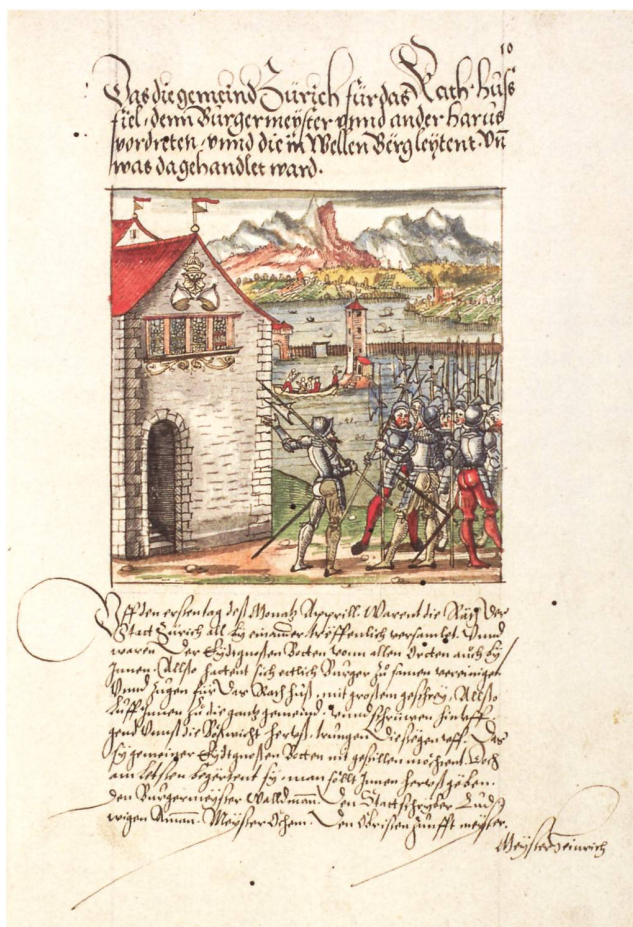 10
Das die gemeind Zürich für das Rath huss
fiel, denn Burgermeyster vnnd ander harus
vordreten, vnnd die in Wellen Berg leytent. Vn̄
was da gehandlet ward.
Vff den ersten tag dess Monatz Apprill. Warent die Räth der
Statt Zürich all by einanner treffenlich versamlet. Vnnd
waren der Eydtgnossen Botten vonn allen Orten auch by
Innen. Allso hattent sich ettlich Burger zu samen vereiniget
Vnnd zugen für das Rath huss, mit grossem geschrey, Allso
luff Innen zu die gantz gemeind. vnnd schrüwen hinuff
die steigen vff. Das
gemeiner Eydtgnossen Botten mit gestillen mochtent. Doch
am letsten begertent sy, man söllt Innen heruss geben.
den Burgermeyster Walldmann. Den Stattschryber Lud=
wigen Amann. Meyster Öhem. Den Obristen Zunfft meyster.
Meyster Heinrich